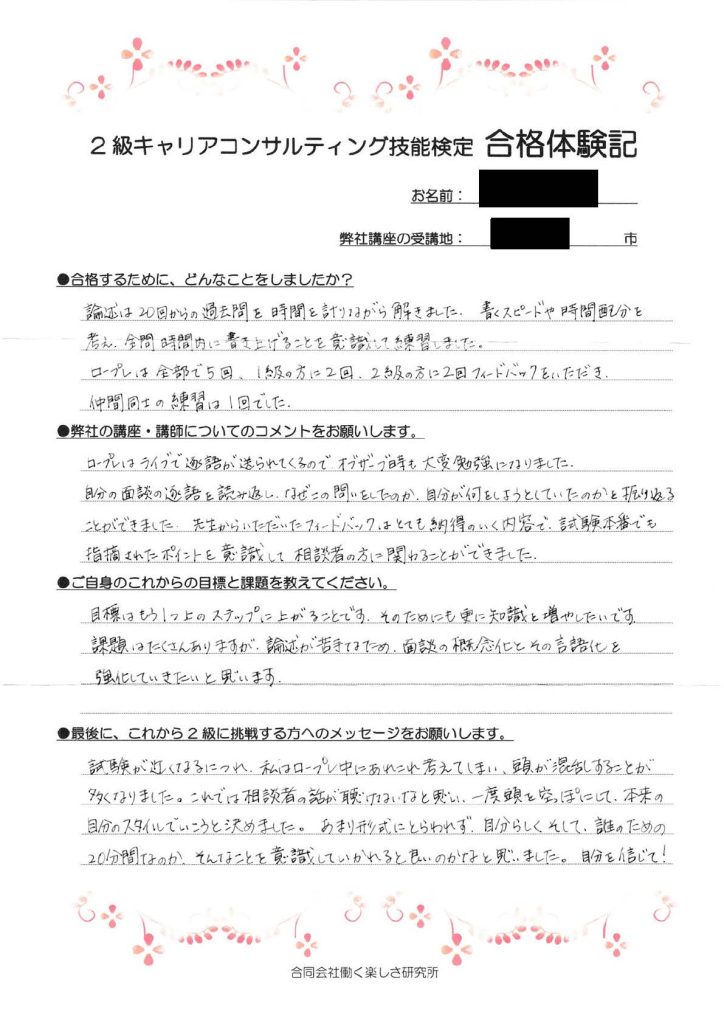 2級キャリアコンサルティング技能検定 合格体験記
お名前：
弊社講座の受講地： 市
●合格するために、どんなことをしましたか？
論述は20回からの過去問を時間を計りながら解きました。書くスピードや時間配分を
考え、全問時間内に書き上げることを意識して練習しました。
ロープレは全部で5回、1級の方に2回、2級の方に2回フィードバックをいただき、
仲間同士の練習は1回でした。
●弊社の講座・講師についてのコメントをお願いします。
ロープレはライブで逐語が送られてくるのでオブザーブ時も大変勉強になりました。
自分の面談の逐語を読み返し、なぜこの問いをしたのか、自分が何をしようとしていたのかを振り返る
ことができました。先生からいただいたフィードバックはとても納得のいく内容で、試験本番でも
指摘されたポイントを意識して相談者の方に関わることができました。
●ご自身のこれからの目標と課題を教えてください。
目標はもう1つ上のステップに上がることです。そのためにも更に知識を増やしたいです。
課題はたくさんありますが、論述が苦手なため、面談の概念化とその言語化を
強化していきたいと思います。
●最後に、これから2級に挑戦する方へのメッセージをお願いします。
試験が近くなるにつれ、私はロープレ中にあれこれ考えてしまい、頭が混乱することが
多くなりました。これでは相談者の話が聴けないなと思い、一度頭を空っぽにして、本来の
自分のスタイルでいこうと決めました。あまり形式にとらわれず、自分らしくそして、誰のための
20分間なのか、そんなことを意識していかれると良いのかなと思いました。自分を信じて！
合同会社働く楽しさ研究所